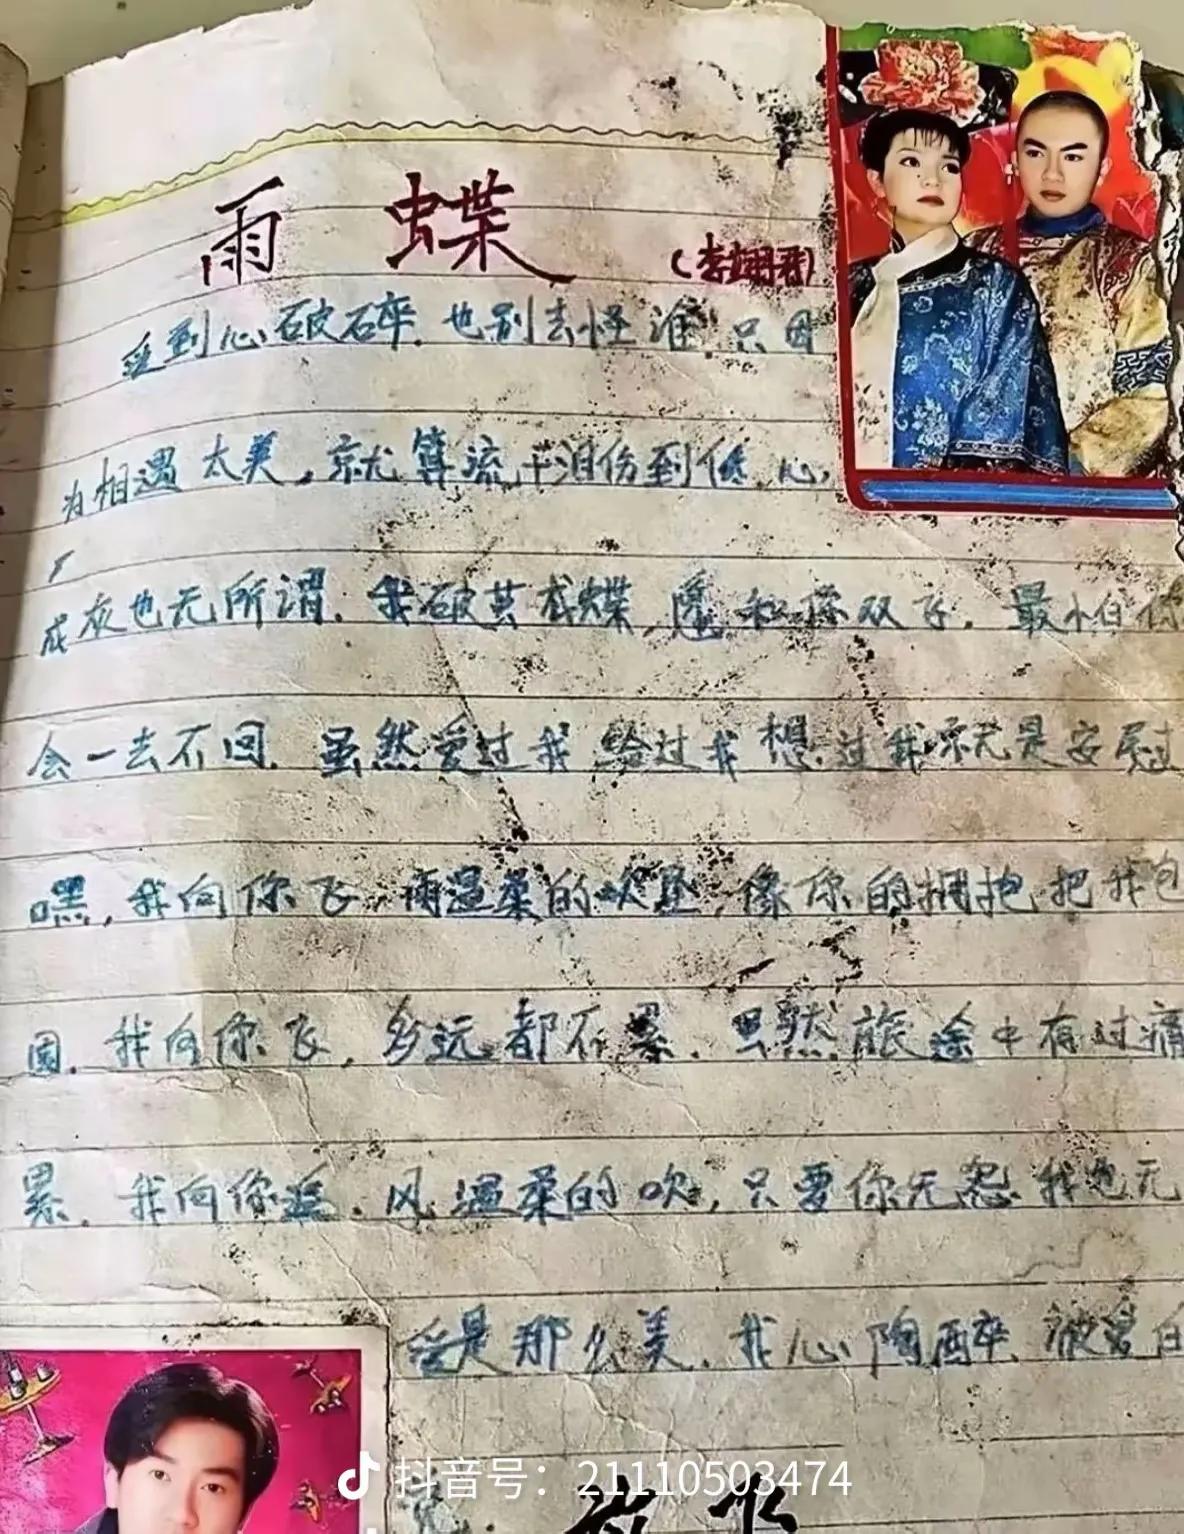 雨 蝶
(李翊君)
爱到心破碎.也别去怪谁.只因
为相遇太美,就算流干泪伤到底,心,
成灰也无所谓.我破茧成蝶,愿和你双飞.最怕你
会一去不回.虽然爱过我给过我想过我就是安慰
嘿,我向你飞,雨温柔的吹坠,像你的拥抱把我包
围.我向你飞,多远都不累.虽然旅途中有过痛
累.我向你追.风温柔的吹,只要你无怨我也无
爱是那么美.我心陶醉.被曾自
抖音号:21110503474